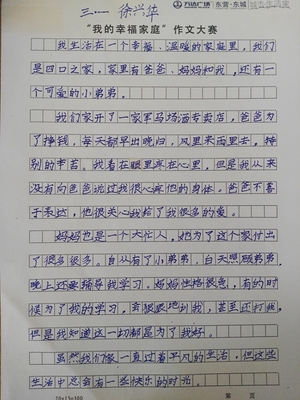 三.一 徐兴华
万达广场 东营·东城
“我的幸福家庭”作文大赛
我生活在一个幸福、温暖的家庭里,我们
是四口之家,家里有爸爸、妈妈和我,还有一
个可爱的小弟弟。
我们家开了一家军马场酒专卖店,爸爸为
了挣钱,每天都早出晚归,风里来雨里去,特
别的辛苦。我看在眼里疼在心里,但是我从来
没有向爸爸说过我很心疼他的身体,爸爸不善
于表达,他很关心我给了我很多的爱。
妈妈也是一个大忙人,她为了这个家付出
了很多很多,自从有了小弟弟,白天照顾弟弟,
晚上还要辅导我学习。妈妈性格很急,有的时
候为了我的学习,会狠狠地训我,甚至还打我,
但是我知道这一切都是为了我好。
虽然我们家一直过着平凡的生活,但这些
生活中总会有一些快乐的时光。
20×15=300 第 页